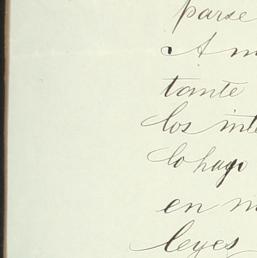 parse
A m
tante
los inte
lo hago
en m
leyes